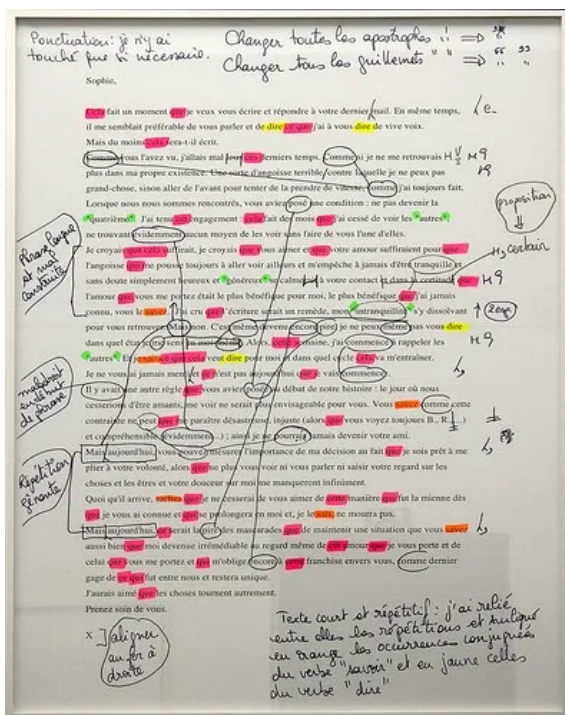 Ponctuation: je n'y ai
touché que si nécessaire.
Changer toutes les apostrophes ' ' ⇒ ' '
Changer tous les guillemets " " ⇒ “ ”
Sophie,
Cela fait un moment que je veux vous écrire et répondre à votre dernier mail. En même temps,
il me semblait préférable de vous parler et de dire ce que j'ai à vous dire de vive voix.
Mais du moins cela sera-t-il écrit.
Comme vous l'avez vu, j'allais mal tous ces derniers temps. Comme si je ne me retrouvais
plus dans ma propre existence. Une sorte d'angoisse terrible, contre laquelle je ne peux pas
grand-chose, sinon aller de l'avant pour tenter de la prendre de vitesse, comme j'ai toujours fait.
Lorsque nous nous sommes rencontrés, vous aviez posé une condition : ne pas devenir la
"quatrième". J'ai tenu cet engagement : cela fait des mois que j'ai cessé de voir les "autres",
ne trouvant évidemment aucun moyen de les voir sans faire de vous l'une d'elles.
Je croyais que cela suffirait, je croyais que vous aimer et que votre amour suffiraient pour que
l'angoisse qui me pousse toujours à aller voir ailleurs et m'empêche à jamais d'être tranquille et
sans doute simplement heureux et "généreux" se calmerait à votre contact et dans la certitude que
l'amour que vous me portez était le plus bénéfique pour moi, le plus bénéfique que j'ai jamais
connu, vous le savez. J'ai cru que l'écriture serait un remède, mon intranquillité s'y dissolvant
pour vous retrouver. Mais non. C'est même devenu encore pire, je ne peux même pas vous dire
dans quel état je me sens en moi-même. Alors, cette semaine, j'ai commencé à rappeler les
"autres". Et je sais ce que cela veut dire pour moi et dans quel cycle cela va m'entraîner.
Je ne vous ai jamais menti et ce n'est pas aujourd'hui que je vais commencer.
Il y avait une autre règle que vous aviez posée au début de notre histoire : le jour où nous
cesserions d'être amants, me voir ne serait plus envisageable pour vous. Vous savez comme cette
contrainte ne peut que me paraître désastreuse, injuste (alors que vous voyez toujours B., R.…)
et compréhensible (évidemment…) ; ainsi je ne pourrais jamais devenir votre ami.
Mais aujourd'hui, vous pouvez mesurer l'importance de ma décision au fait que je sois prêt à me
plier à votre volonté, alors que ne plus vous voir ni vous parler ni saisir votre regard sur les
choses et les êtres et votre douceur sur moi me manqueront infiniment.
Quoi qu'il arrive, sachez que je ne cesserai de vous aimer de cette manière qui fut la mienne dès
que je vous ai connue et qui se prolongera en moi et, je le sais, ne mourra pas.
Mais aujourd'hui, ce serait la pire des mascarades que de maintenir une situation que vous savez
aussi bien que moi devenue irrémédiable au regard même de cet amour que je vous porte et de
celui que vous me portez et qui m'oblige encore à cette franchise envers vous, comme dernier
gage de ce qui fut entre nous et restera unique.
J'aurais aimé que les choses tournent autrement.
Prenez soin de vous.
X
e
proposition
certain
Phrase longue
et mal
construite
maladroit
en début
de phrase
Répétition
gênante
aligner
au fer à
droite
Texte court et répétitif : j'ai relié
entre elles les répétitions et surligné
en orange les occurrences conjuguées
du verbe "savoir" et en jaune celles
du verbe "dire"